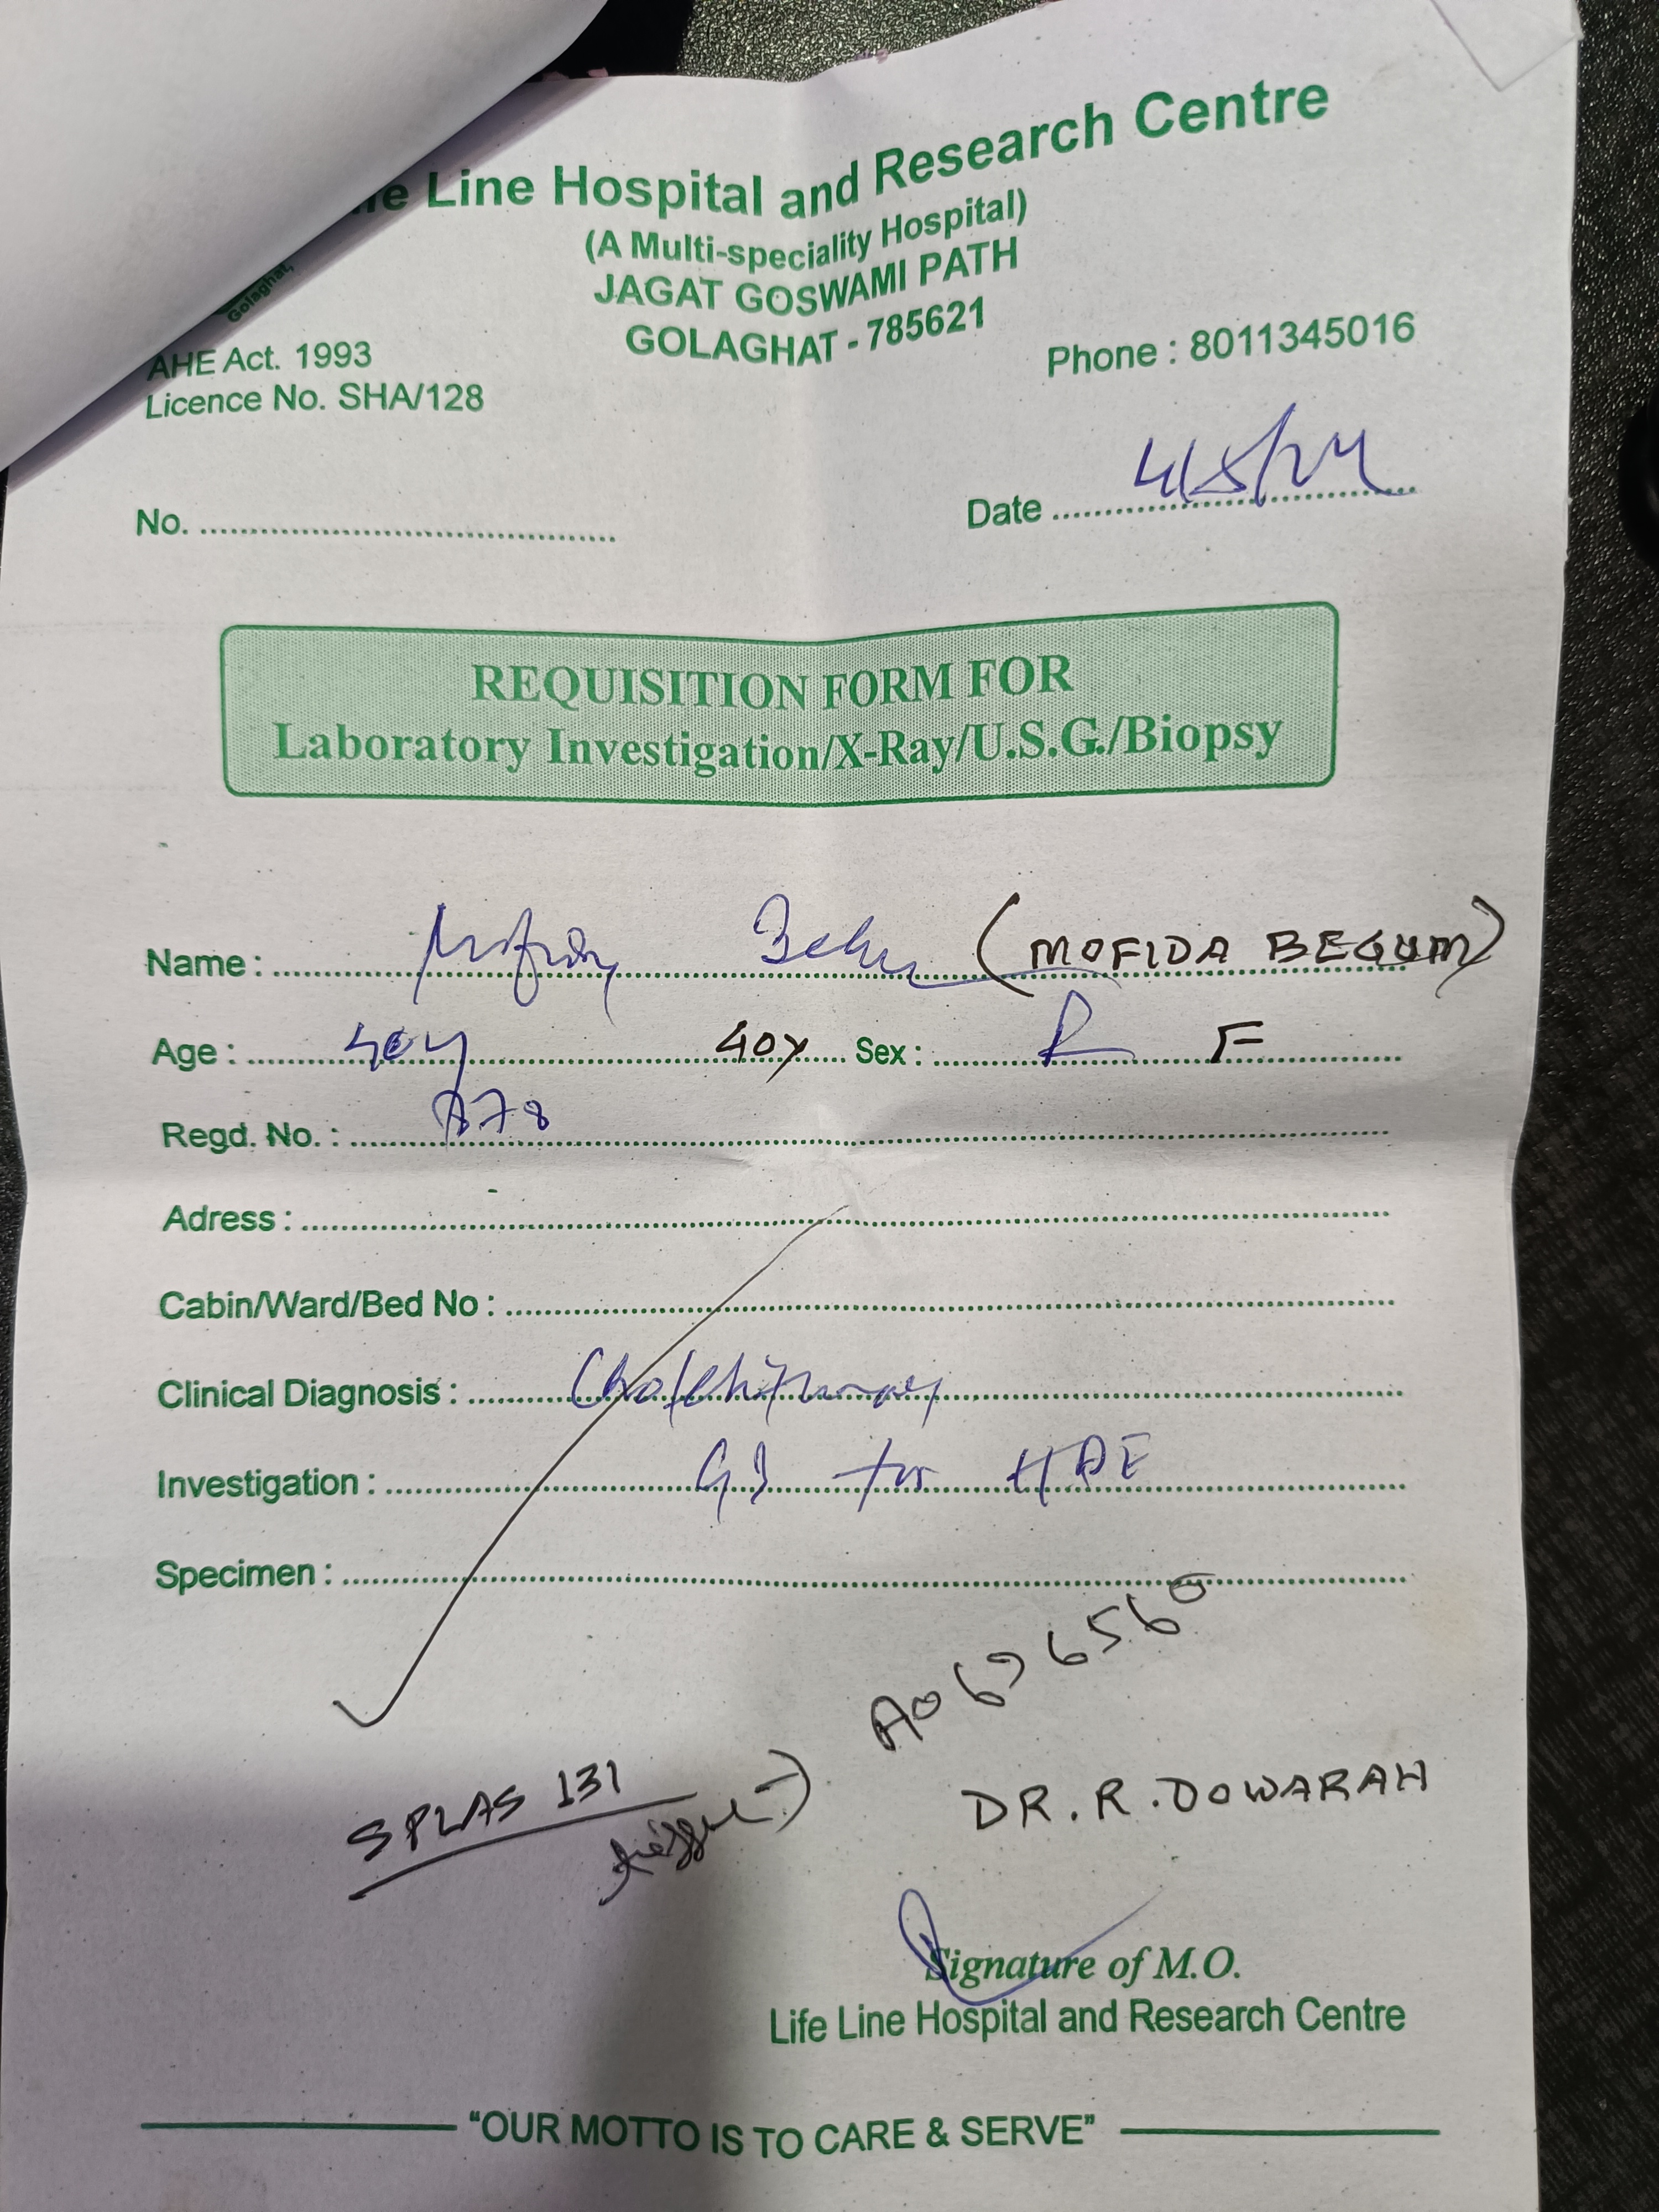 e Line Hospital and Research Centre
(A Multi-speciality Hospital)
JAGAT GOSWAMI PATH
GOLAGHAT - 785621
Golaghat,
AHE Act. 1993
Licence No. SHA/128
Phone : 8011345016
No. ..........
Date ..........
REQUISITION FORM FOR
Laboratory Investigation/X-Ray/U.S.G./Biopsy
Name : (MOFIDA BEGUM)
Age : 40y 40y Sex : F
Regd. No. :
Adress :
Cabin/Ward/Bed No :
Clinical Diagnosis :
Investigation : GB for HPE
Specimen :
SPLAS 131
DR. R. DOWARAH
Signature of M.O.
Life Line Hospital and Research Centre
“OUR MOTTO IS TO CARE & SERVE”